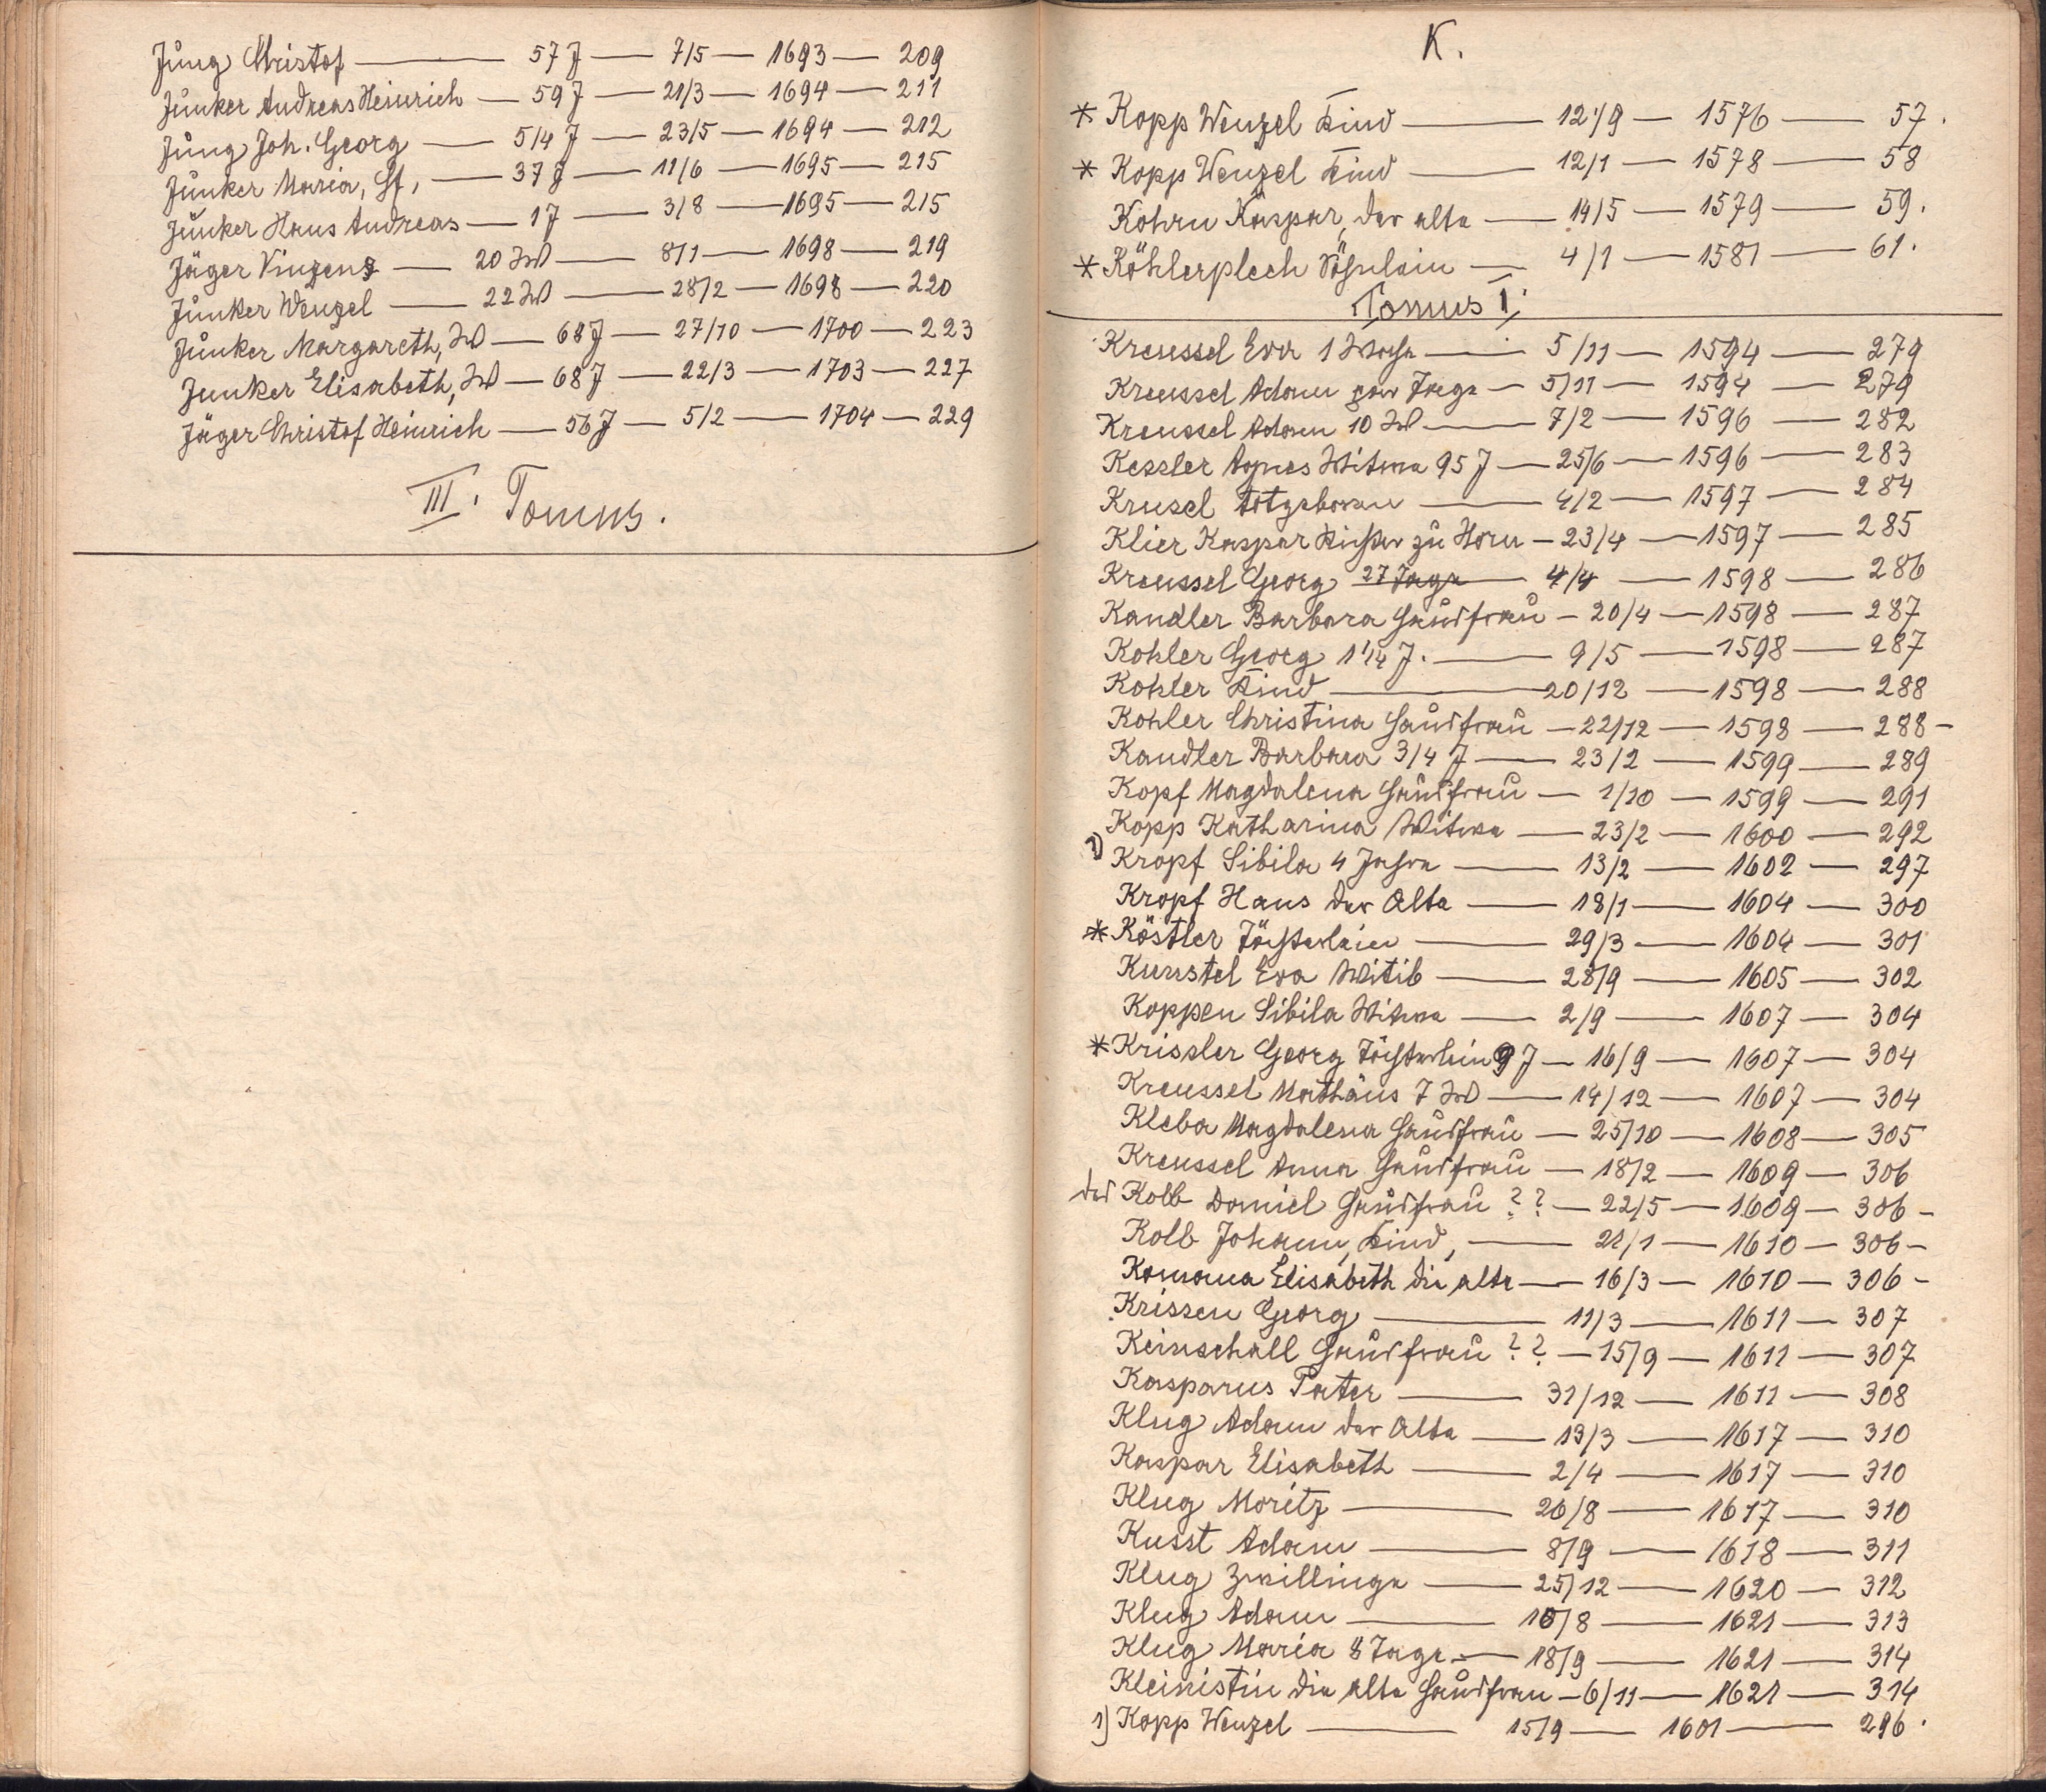 Jung Christof — 57 J — 7/5 — 1693 — 209
Junker Andreas Heinrich — 59 J — 21/3 — 1694 — 211
Jung Joh. Georg — 5/4 J — 23/5 — 1694 — 212
Junker Maria, Hf, — 37 J — 11/6 — 1695 — 215
Junker Hans Andreas — 1 J — 3/8 — 1695 — 215
Jäger Vinzenz — 20 W — 8/1 — 1698 — 219
Junker Wenzel — 22 W — 28/2 — 1698 — 220
Junker Margareth, W — 68 J — 27/10 — 1700 — 223
Junker Elisabeth, W — 68 J — 22/3 — 1703 — 227
Jäger Christof Heinrich — 56 J — 5/2 — 1704 — 229
III. Tomus.
K.
* Kopp Wenzel Kind — 12/9 — 1576 — 57.
* Kopp Wenzel Kind — 12/1 — 1578 — 58
Kohrn Kaspar, der alte — 14/5 — 1579 — 59.
* Köhlerplech Söhnlein — 4/1 — 1581 — 61.
Tomus I.
Kreussel Eva 1 Woche — 5/11 — 1594 — 279
Kreussel Adam paar Tage — 5/11 — 1594 — 279
Kreussel Adam 10 W — 7/2 — 1596 — 282
Kessler Agnes Witwe 95 J — 25/6 — 1596 — 283
Krusel totgeboren — 4/2 — 1597 — 284
Klier Kaspar Richter zu Horn — 23/4 — 1597 — 285
Kreussel Georg 27 Tage — 4/4 — 1598 — 286
Kandler Barbara Hausfrau — 20/4 — 1598 — 287
Kohler Georg 1 1/4 J. — 9/5 — 1598 — 287
Kohler Kind — 20/12 — 1598 — 288
Kohler Christina Hausfrau — 22/12 — 1598 — 288 —
Kandler Barbara 3/4 J — 23/2 — 1599 — 289
Kopf Magdalena Hausfrau — 1/10 — 1599 — 291
Kopp Katharina Witwe — 23/2 — 1600 — 292
1) Kropf Sibila 4 Jahre — 13/2 — 1602 — 297
Kropf Hans der Alte — 18/1 — 1604 — 300
* Köstler Töchterlein — 29/3 — 1604 — 301
Kunstel Eva Witib — 28/9 — 1605 — 302
Koppen Sibila Witwe — 2/9 — 1607 — 304
* Krissler Georg Töchterlein 9 J — 16/9 — 1607 — 304
Kreussel Mathäus 7 W — 14/12 — 1607 — 304
Kleba Magdalena Hausfrau — 25/10 — 1608 — 305
Kreussel Anna Hausfrau — 18/2 — 1609 — 306
des Kolb Daniel Hausfrau ?? — 22/5 — 1609 — 306 —
Kolb Johann, Kind, — 21/1 — 1610 — 306 —
Komana Elisabeth die alte — 16/3 — 1610 — 306 —
Krissen Georg — 11/3 — 1611 — 307
Keinschall Hausfrau ?? — 15/9 — 1611 — 307
Kasparus Pater — 31/12 — 1611 — 308
Klug Adam der Alte — 19/3 — 1617 — 310
Kaspar Elisabeth — 2/4 — 1617 — 310
Klug Moritz — 26/8 — 1617 — 310
Kusst Adam — 8/9 — 1618 — 311
Klug Zwillinge — 25/12 — 1620 — 312
Klug Adam — 10/8 — 1621 — 313
Klug Maria 8 Tage — 18/9 — 1621 — 314
Kleinistin die alte Hausfrau — 6/11 — 1621 — 314
1) Kopp Wenzel — 15/9 — 1601 — 296.